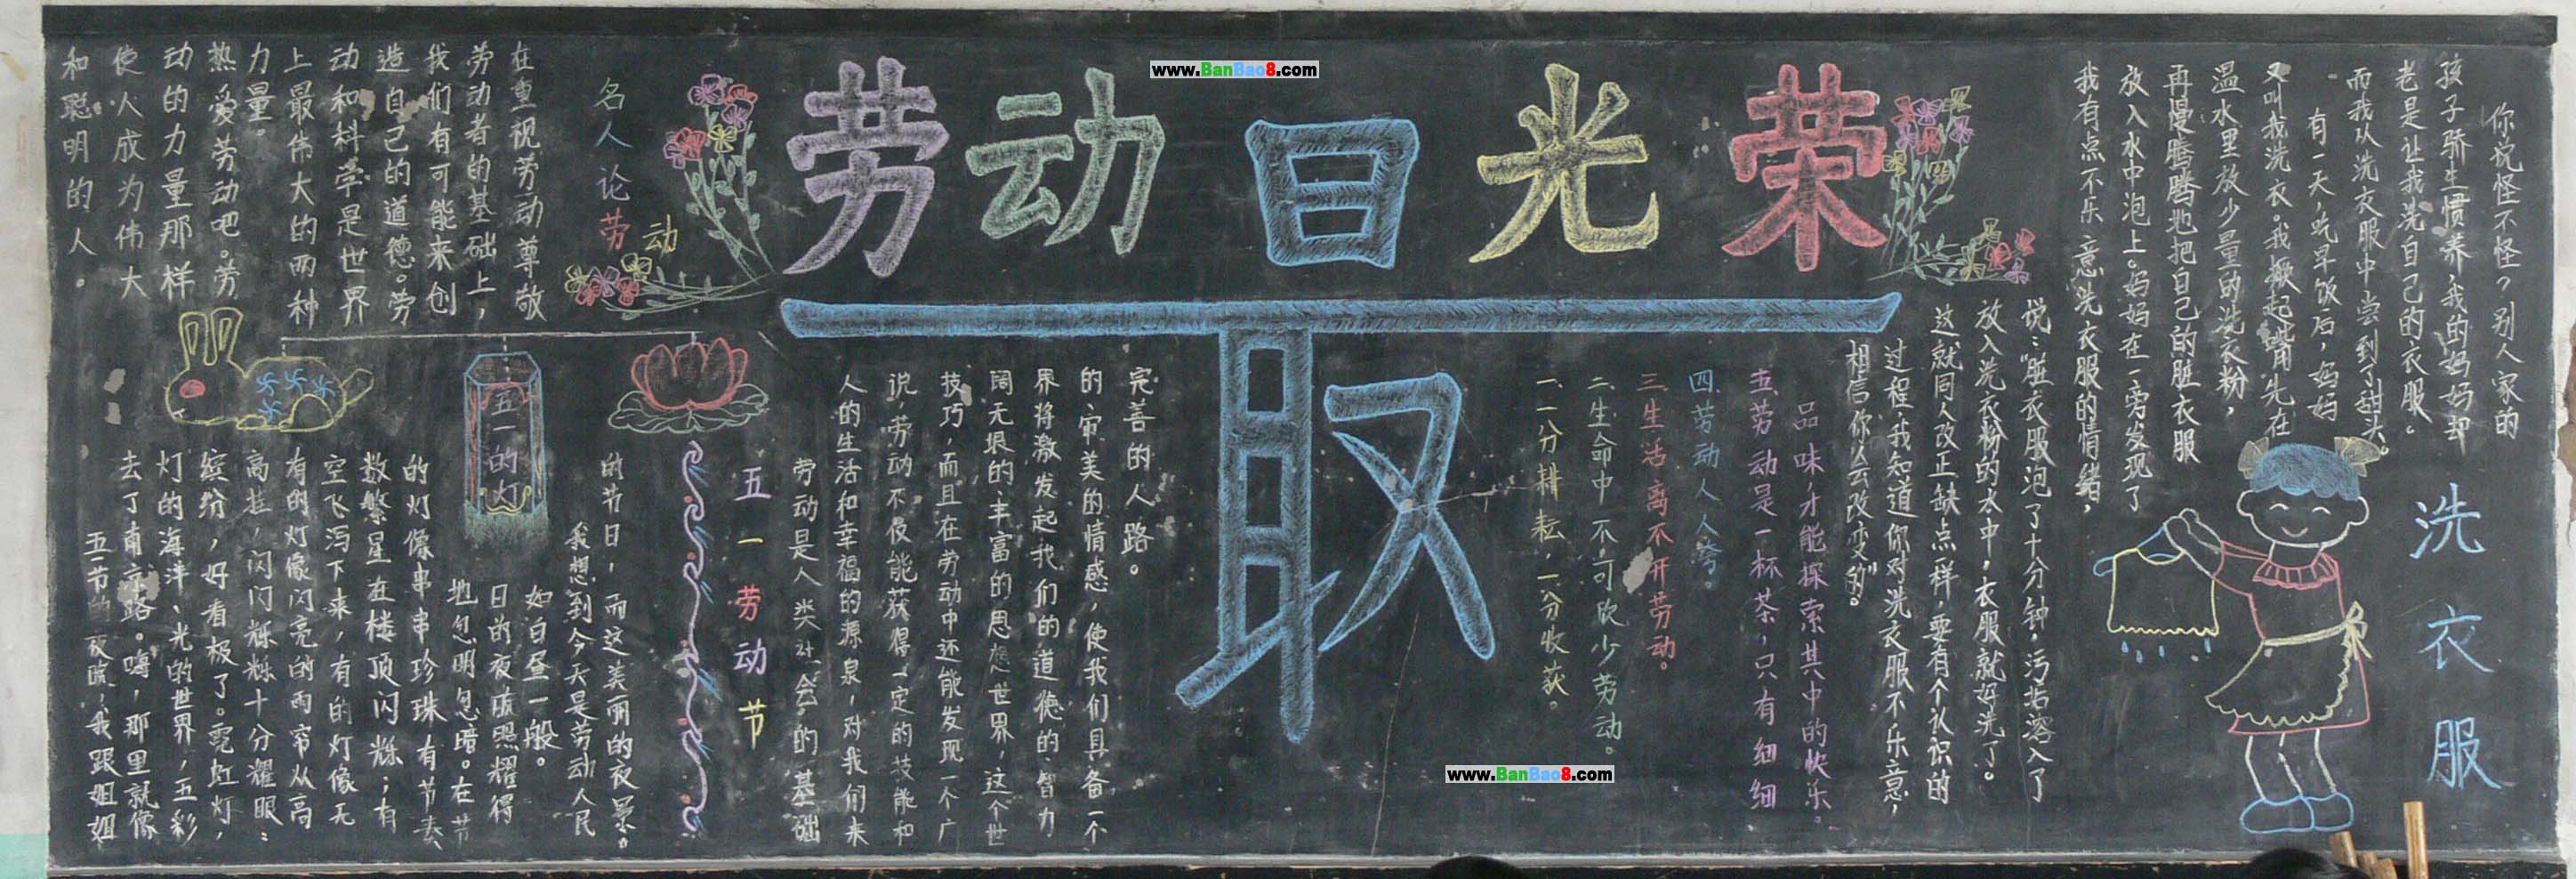 www.BanBao8.com
劳动最光荣
洗衣服
你说怪不怪?别人家的
孩子骄生惯养,我的妈妈却
老是让我洗自己的衣服。
而我从洗衣服中尝到了甜头。
有一天,吃早饭后,妈妈
又叫我洗衣。我撅起嘴先在
温水里放少量的洗衣粉,
再慢腾腾地把自己的脏衣服
放入水中泡上。妈妈在一旁发现了
我有点不乐意洗衣服的情绪,
说:"脏衣服泡了十分钟,污垢溶入了
放入洗衣粉的水中,衣服就好洗了。
这就同人改正缺点一样,要有个认识的
过程,我知道你对洗衣服不乐意,
相信你会改变的"。
一.一分耕耘,一分收获。
二.生命中不可缺少劳动。
三.生活离不开劳动。
四.劳动人人夸。
五.劳动是一杯茶,只有细细
品味,才能探索其中的快乐。
五一劳动节
劳动是人类社会的基础
人的生活和幸福的源泉,对我们来
说,劳动不仅能获得一定的技能和
技巧,而且在劳动中还能发现一个广
阔无垠的丰富的思想世界,这个世
界将激发起我们的道德的智力
的审美的情感,使我们具备一个
完善的人路。
名人论劳动
在重视劳动尊敬
劳动者的基础上,
我们有可能来创
造自己的道德。劳
动和科学是世界
上最伟大的两种
力量。
热爱劳动吧。劳
动的力量那样
使人成为伟大
和聪明的人。
五一的灯
五一节的夜晚,我跟姐姐
去了南京路。嗨,那里就像
灯的海洋、光的世界,五彩
缤纷,好看极了。霓虹灯,
高挂,闪闪烁烁十分耀眼:
有的灯像闪亮的雨帘从高
空飞泻下来,有的灯像无
数繁星在楼顶闪烁;有
的灯像串串珍珠有节奏
地忽明忽暗。在节
日的夜晚照耀得
如白昼一般。
我想到今天是劳动人民
的节日,而这美丽的夜景。
www.BanBao8.com